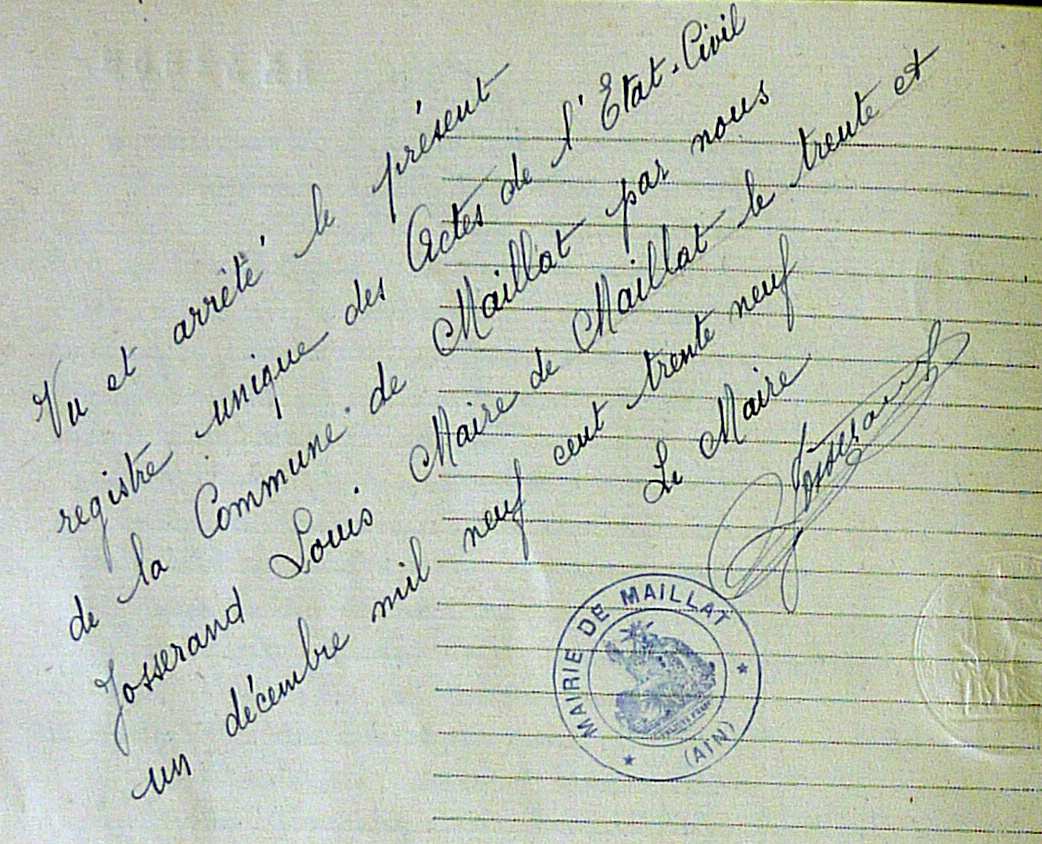 Vu et arrêté le présent
registre unique des Actes de l'Etat-Civil
de la Commune de Maillat par nous
Josserand Louis Maire de Maillat le trente et
un décembre mil neuf cent trente neuf
Le Maire
Josserand
MAIRIE DE MAILLAT
(AIN)